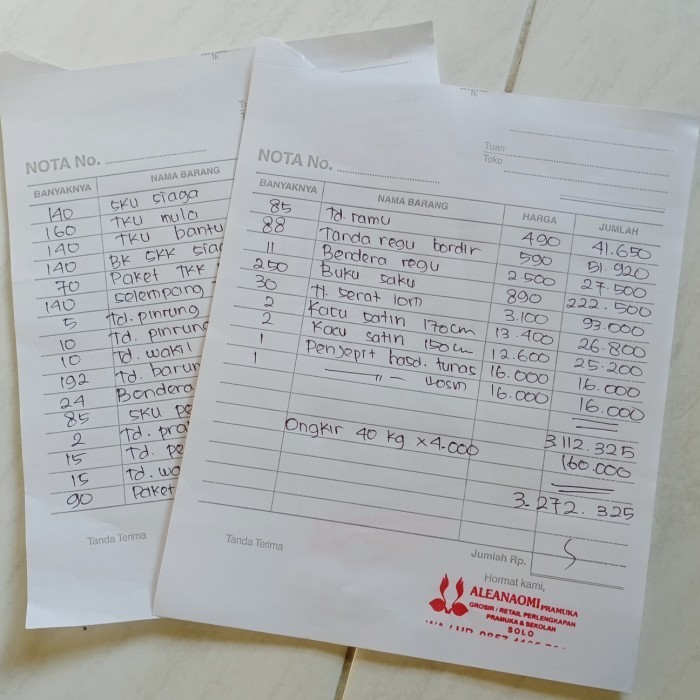 NOTA No.
BANYAKNYA NAMA BARANG
140 SKU siaga
160 TKU mula
140 TKU bantu
140 BK SKK siag
70 Paket TKK
140 selempang
5 td. pinrung
10 td. pinrung
10 td. wakil
192 td. barun
24 Bendera
85 SKU pe
2 td. pra
15 td. pe
15 td. wa
90 Paket
Tanda Terima
Tuan
Toko
NOTA No.
BANYAKNYA NAMA BARANG HARGA JUMLAH
85 Td. ramu 490 41.650
88 Tanda regu bordir 590 51.920
11 Bendera regu 2.500 27.500
250 Buku saku 890 222.500
30 tl. serat 10m 3.100 93.000
2 Kacu satin 170cm 13.400 26.800
2 Kacu satin 150cm 12.600 25.200
1 Penjepit hasd. tunas 16.000 16.000
1 — " — 16.000 16.000
3.112.325
Ongkir 40 kg x 4.000 160.000
3.272.325
Tanda Terima
Jumlah Rp.
Hormat kami,
ALEANAOMI PRAMUKA
GROSIR / RETAIL PERLENGKAPAN
PRAMUKA & SEKOLAH
SOLO